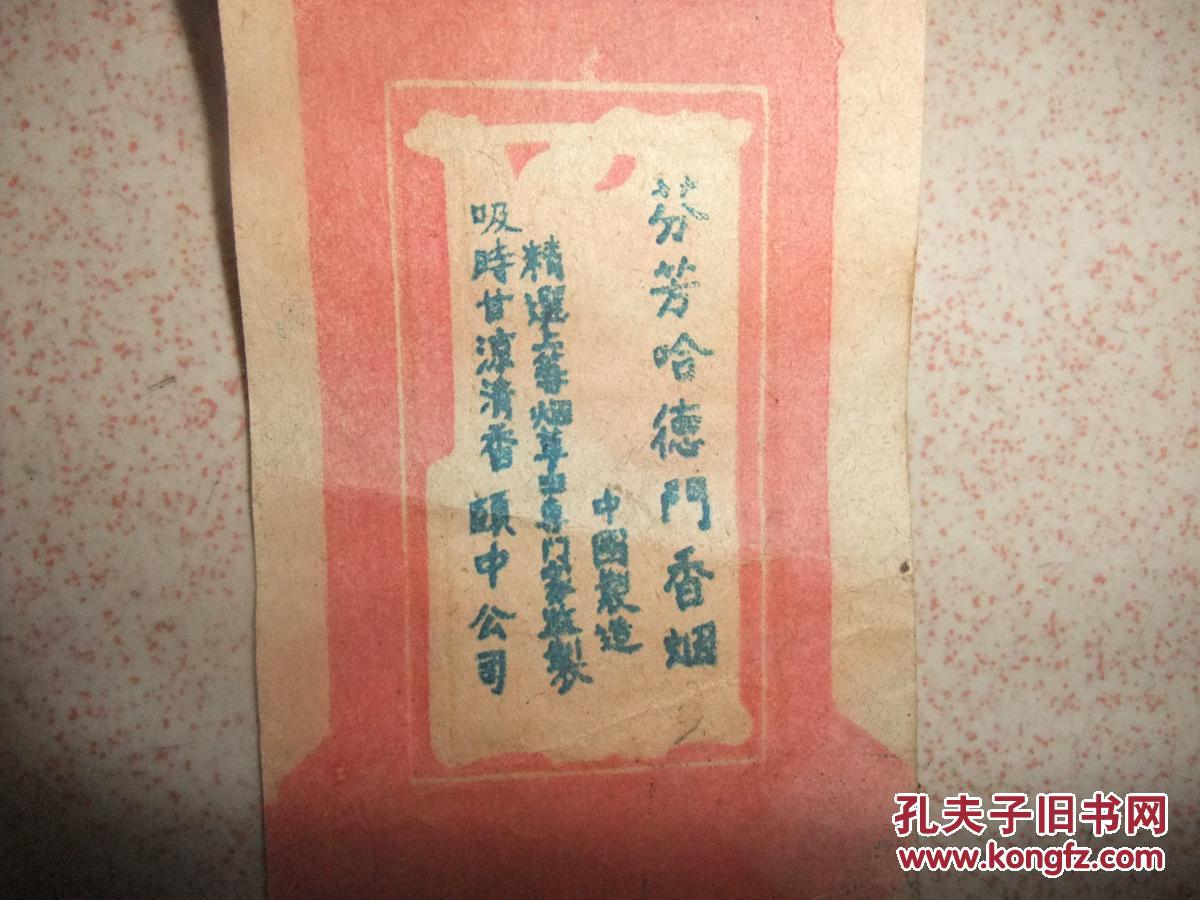 芬芳哈德門香烟
中國製造
精選上等烟草由專門家監製
吸時甘凉清香 頤中公司
孔夫子旧书网
www.kongfz.com